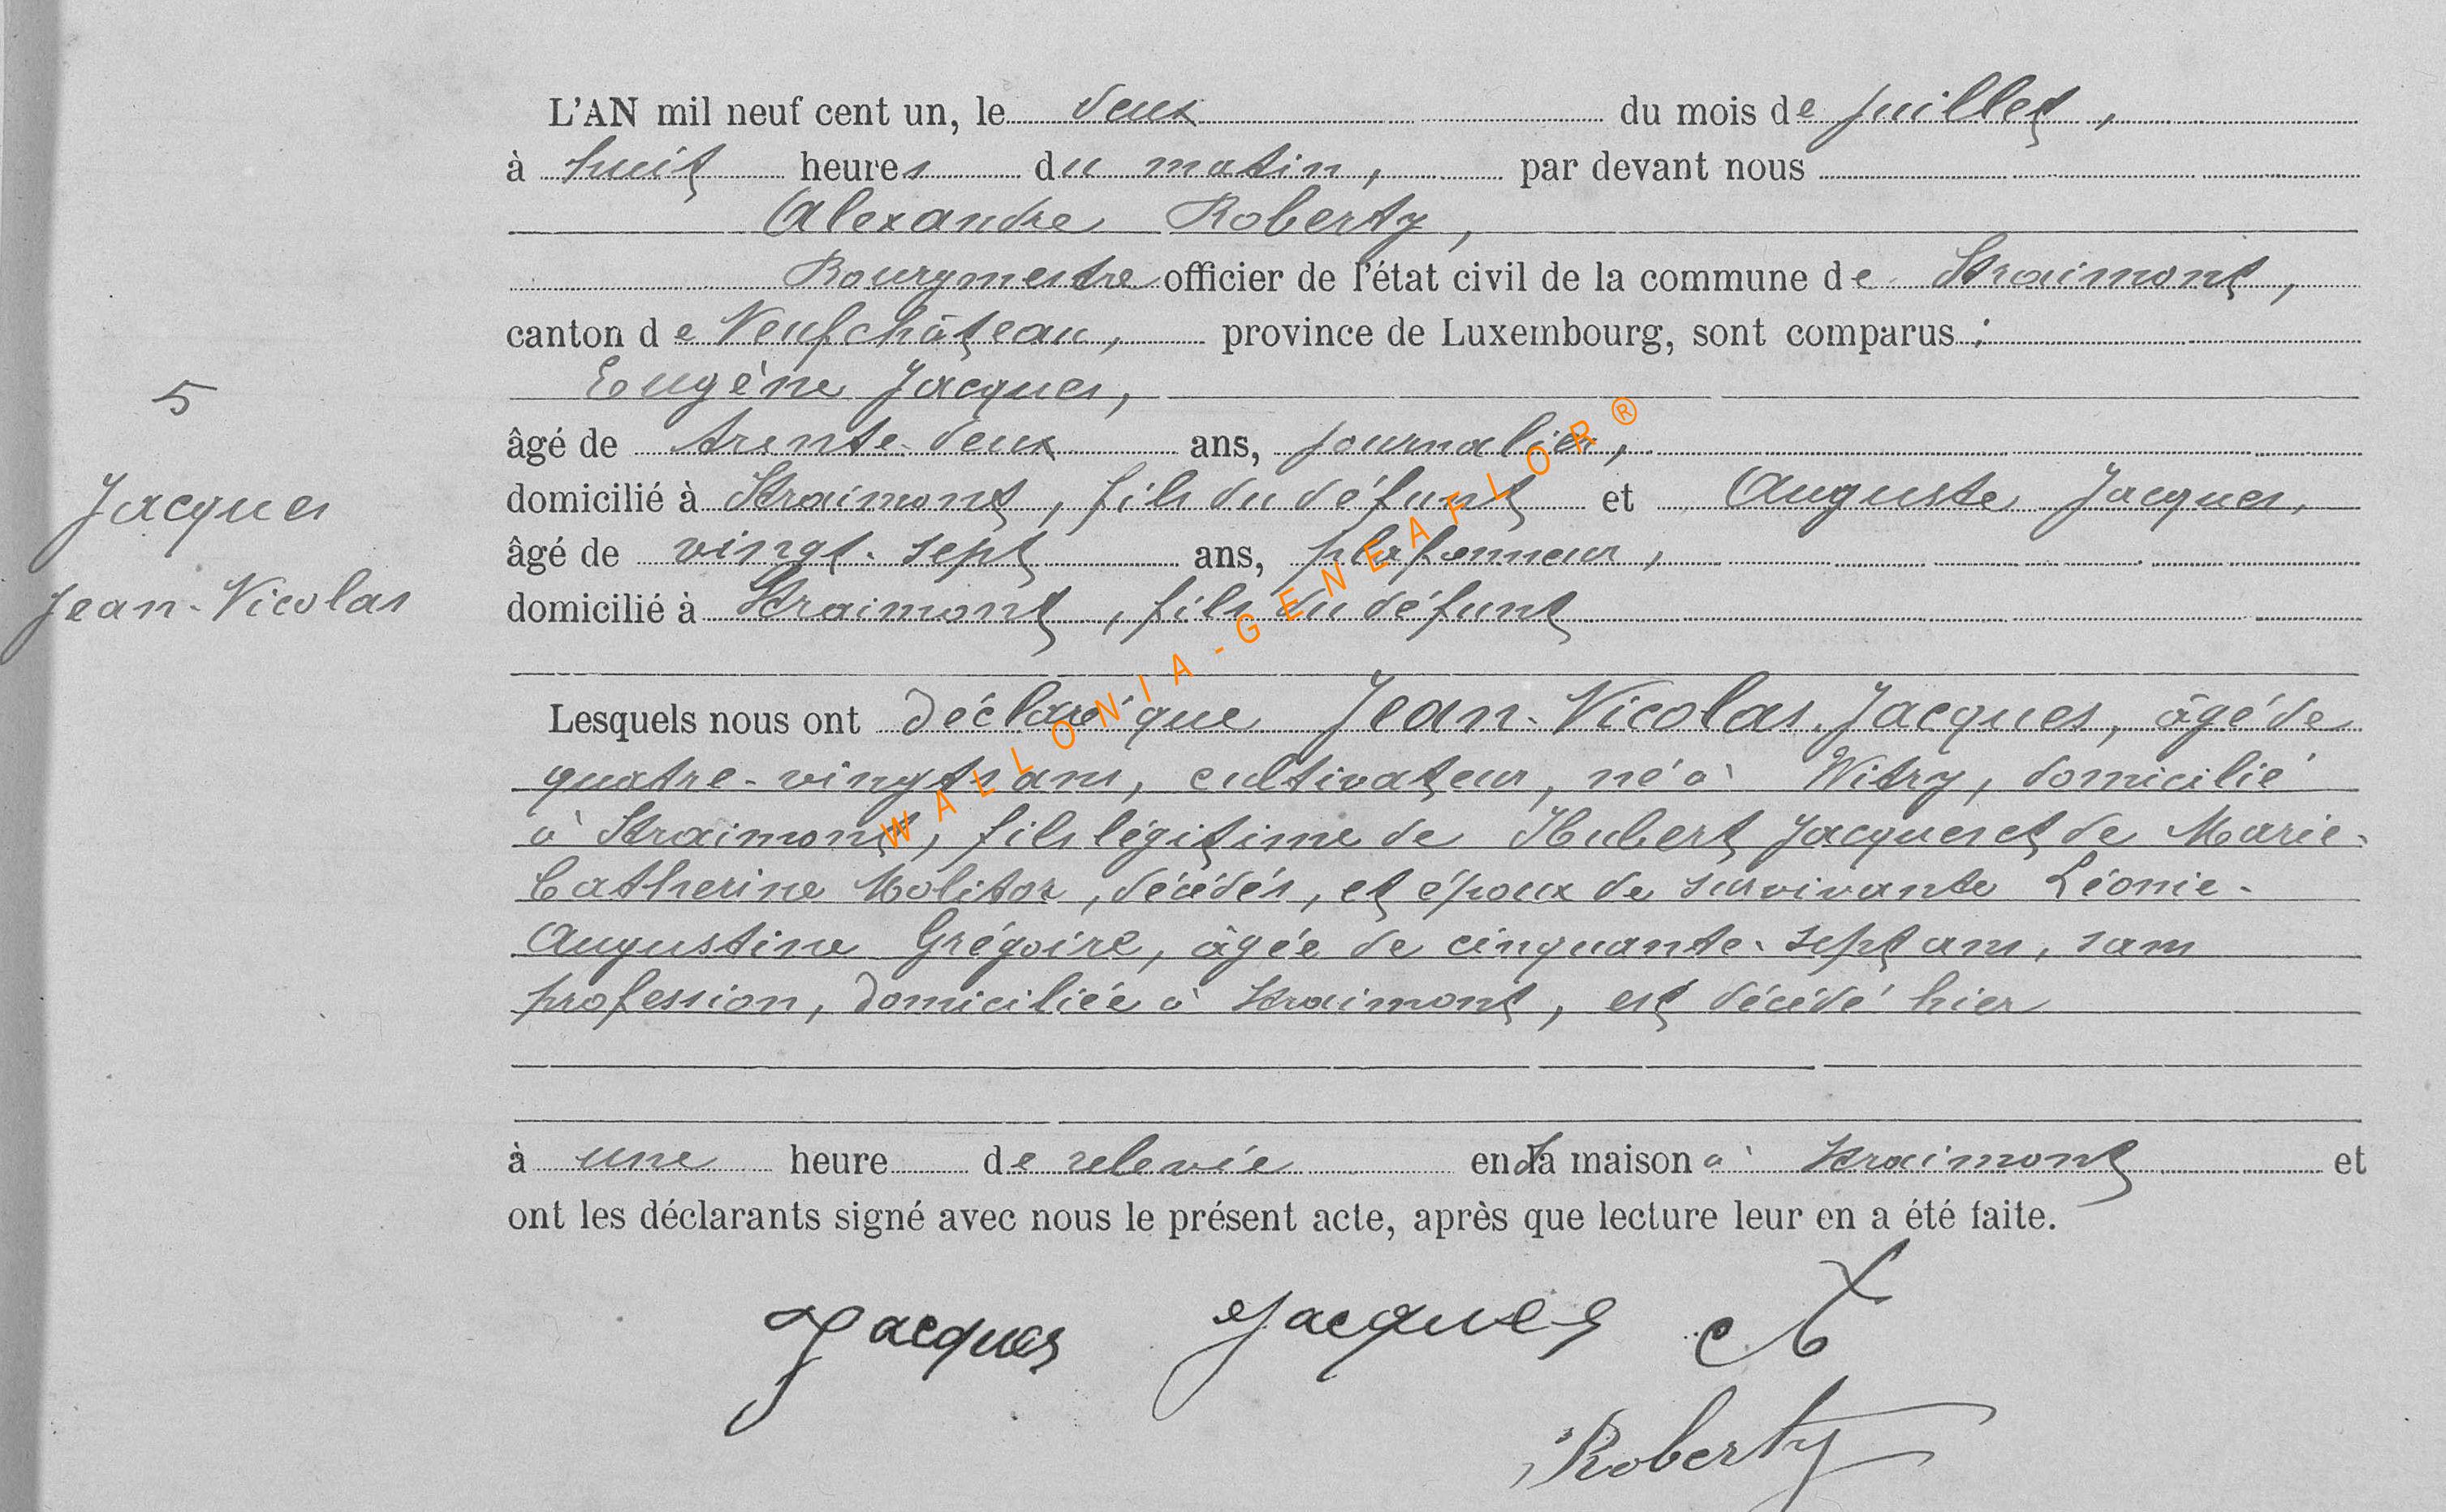 L'AN mil neuf cent un, le deux du mois de juillet,
à huit heures du matin, par devant nous
Alexandre Roberty,
Bourgmestre officier de l'état civil de la commune de Straimont,
canton de Neufchâteau, province de Luxembourg, sont comparus :
Eugène Jacques,
5
âgé de trente-deux ans, journalier,
domicilié à Straimont, fils du défunt et Auguste Jacques,
Jacques
âgé de vingt-sept ans, plafonneur,
Jean-Nicolas
domicilié à Straimont, fils du défunt
Lesquels nous ont déclaré que Jean-Nicolas Jacques, âgé de
quatre-vingts ans, cultivateur, né à Witry, domicilié
à Straimont, fils légitime de Hubert Jacques et de Marie-
Catherine Molitor, décédés, et époux de survivante Léonie-
Augustine Grégoire, âgée de cinquante-sept ans, sans
profession, domiciliée à Straimont, est décédé hier
à une heure de relevée en sa maison à Straimont et
ont les déclarants signé avec nous le présent acte, après que lecture leur en a été faite.
Jacques Jacques A
Roberty
WALLONIA-GENEAFLOR®